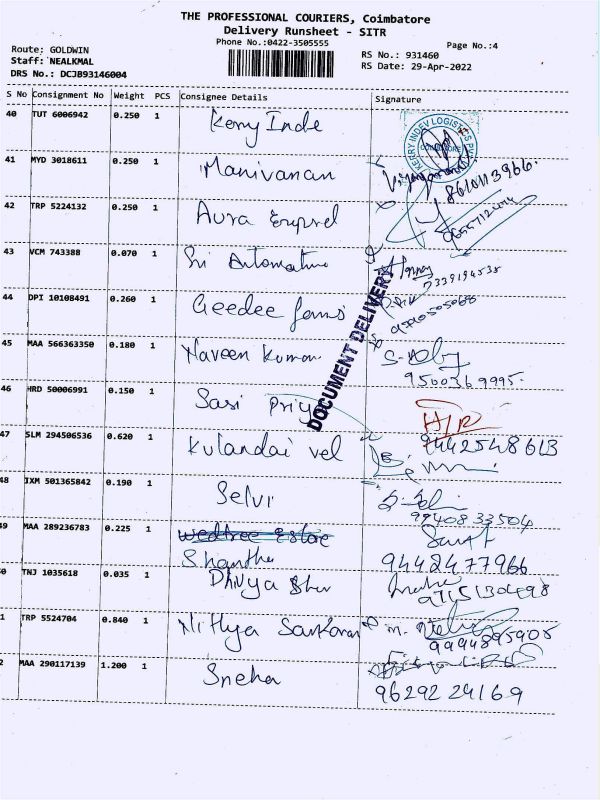 THE PROFESSIONAL COURIERS, Coimbatore
Delivery Runsheet - SITR
Phone No.:0422-3505555
Page No.:4
Route; GOLDWIN
Staff: NEALKMAL
DRS No.: DCJB93146004
RS No.: 931460
RS Date: 29-Apr-2022
S No Consignment No Weight PCS Consignee Details Signature
40 TUT 6006942 0.250 1 Kerry Inde
KERRY INDEV LOGISTICS
41 MYD 3018611 0.250 1 Manivanan
8610113966.
42 TRP 5224132 0.250 1 Aura
43 VCM 743388 0.070 1 Sri
7339194535
44 DPI 10108491 0.260 1 Geedee
DOCUMENT DELIVERY
45 MAA 566363350 0.180 1 Naveen Kumar
9500369995.
46 HRD 50006991 0.150 1 Sasi Priya
H/R
9442548613
47 SLM 294506536 0.620 1 Kulandai vel
48 IXM 501365842 0.190 1 Selvi
9940833504
49 MAA 289236783 0.225 1 Shantha
9442477966
0 TNJ 1035618 0.035 1 Dhivya
9715130498
1 TRP 5524704 0.840 1 Nithya Sankaran
9994895905
2 MAA 290117139 1.200 1 Sneha
9629224169